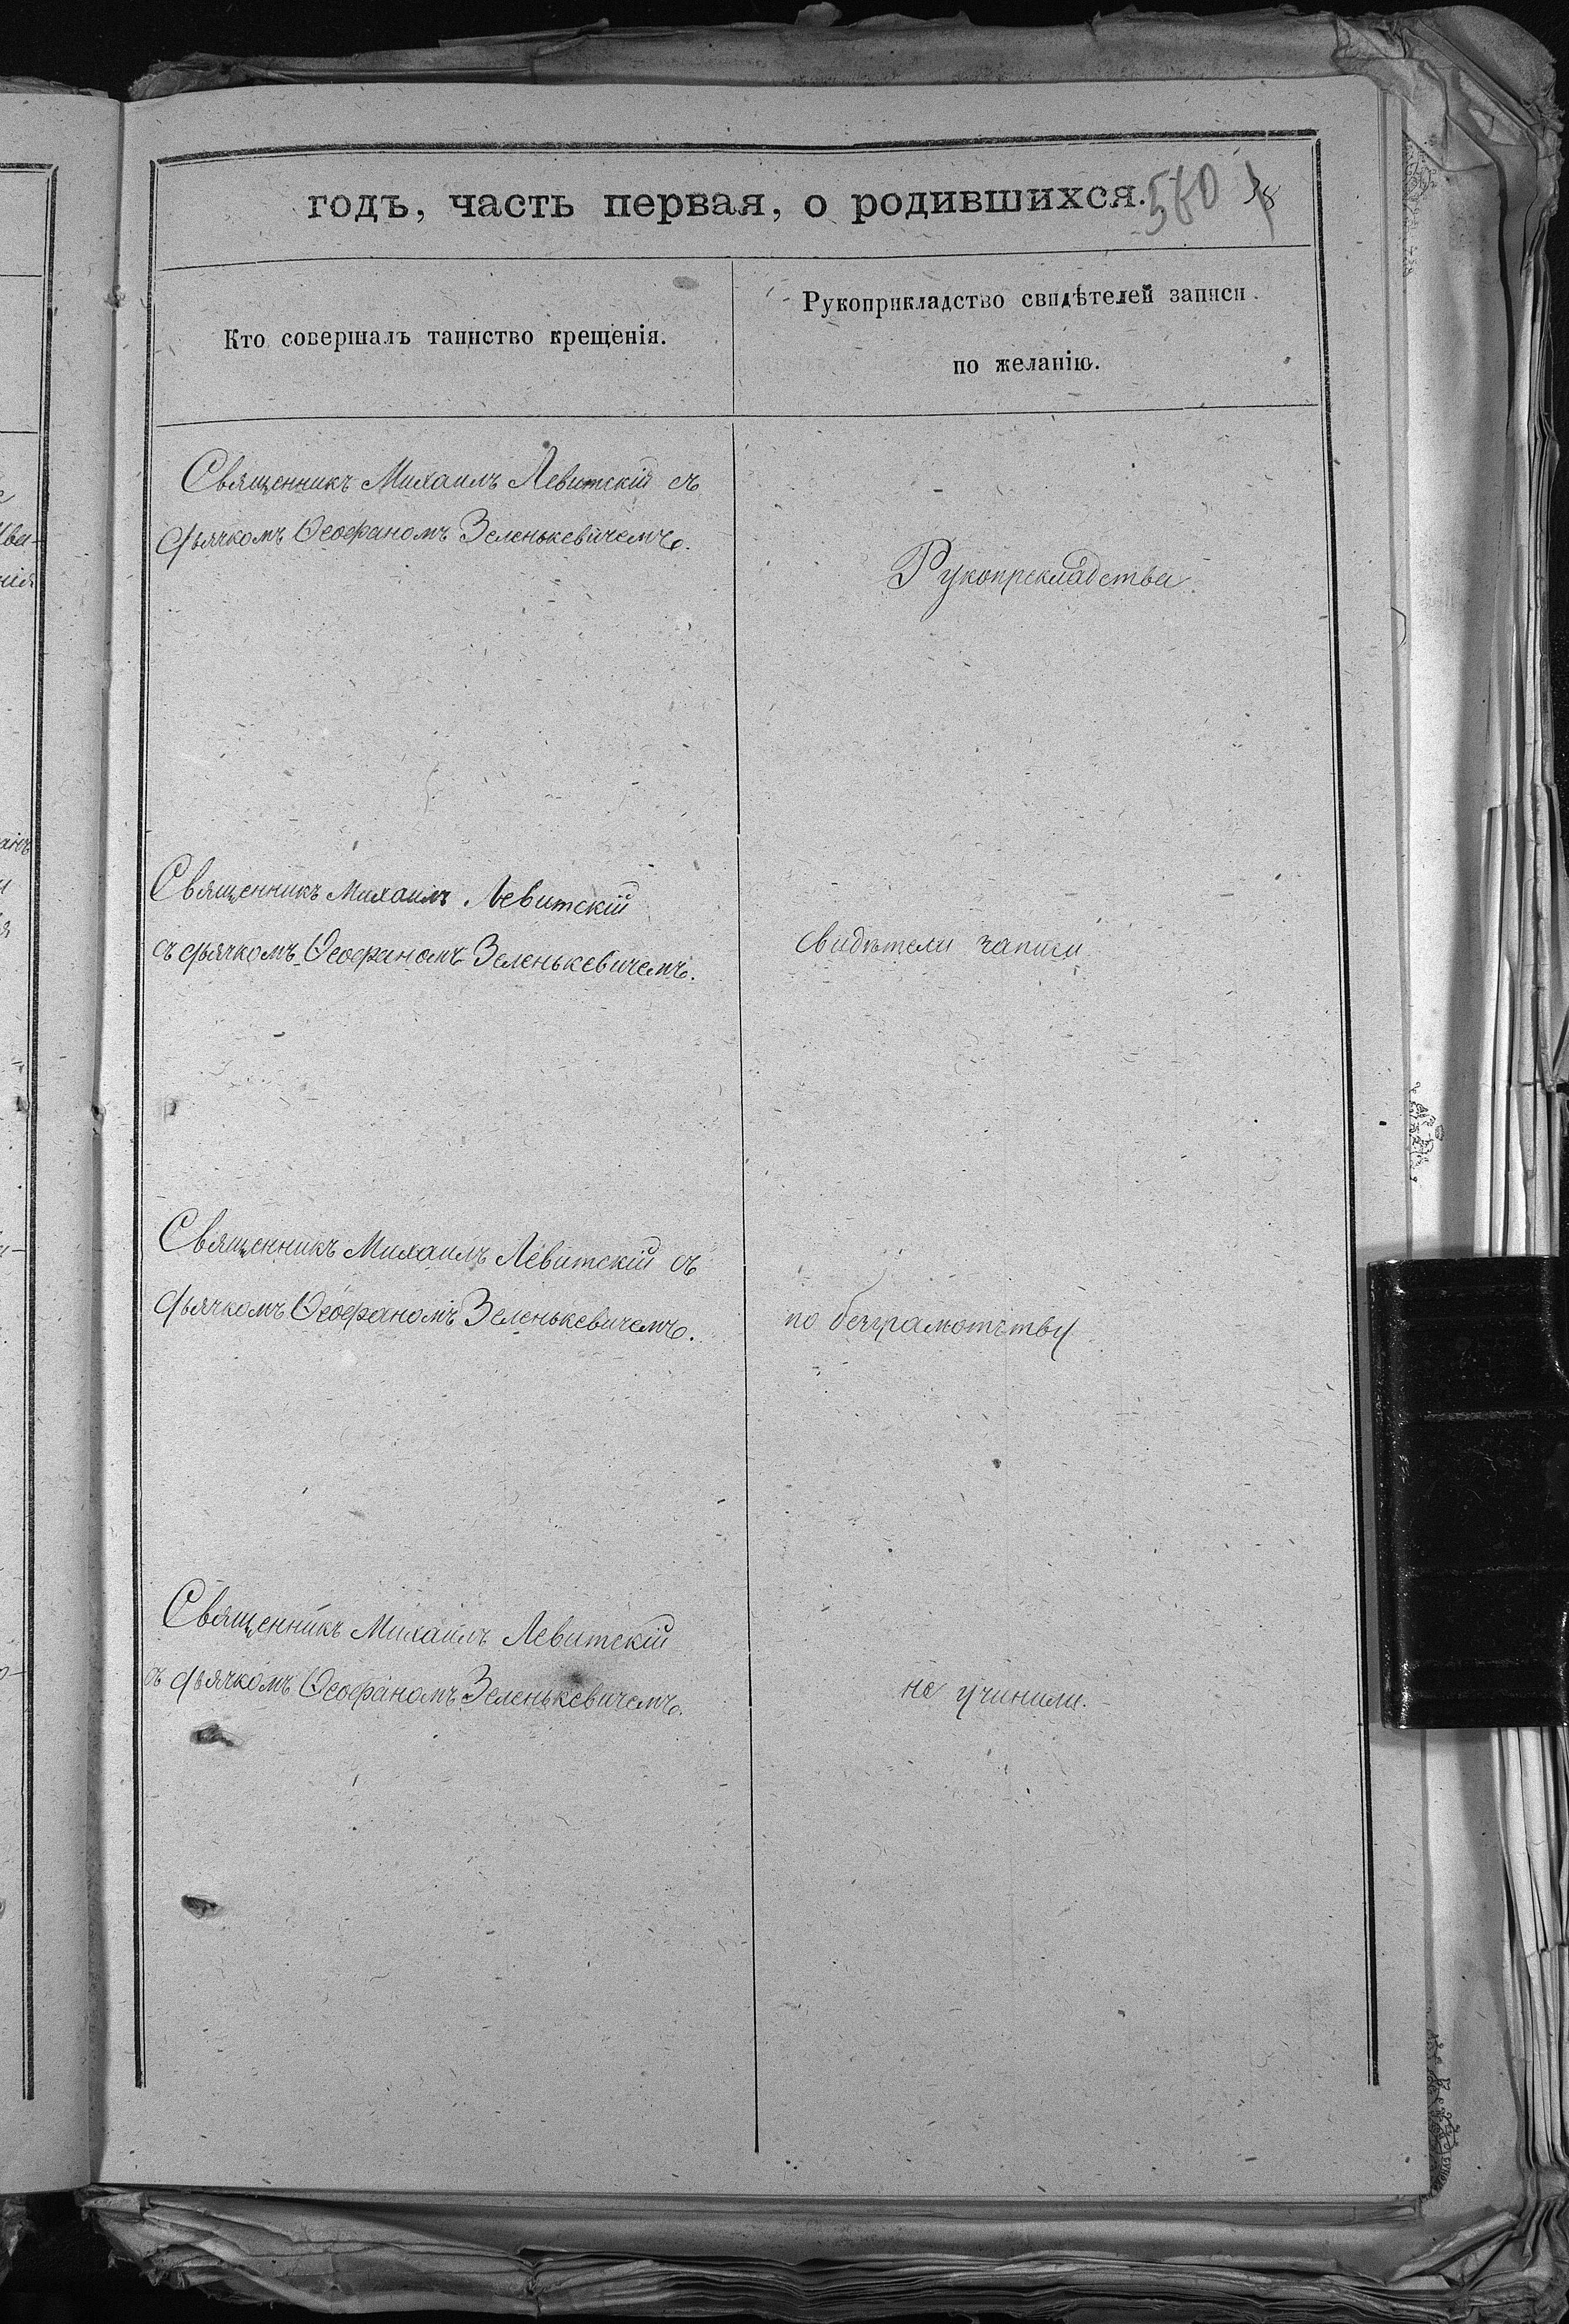 годъ, часть первая, о родившихся. 560
Кто совершалъ таинство крещенія.
Рукоприкладство свидѣтелей записи
по желанію.
Священникъ Михаилъ Левитскій съ
дьячкомъ Ѳеофаномъ Зеленькевичемъ.
Рукопрекладства
Священникъ Михаилъ Левитскій
съ дьячкомъ Ѳеофаномъ Зеленькевичемъ.
свидѣтели записи
Священникъ Михаилъ Левитскій съ
дьячкомъ Ѳеофаномъ Зеленькевичемъ.
по безграмотству
Священникъ Михаилъ Левитскій
съ дьячкомъ Ѳеофаномъ Зеленькевичемъ.
не учинили.